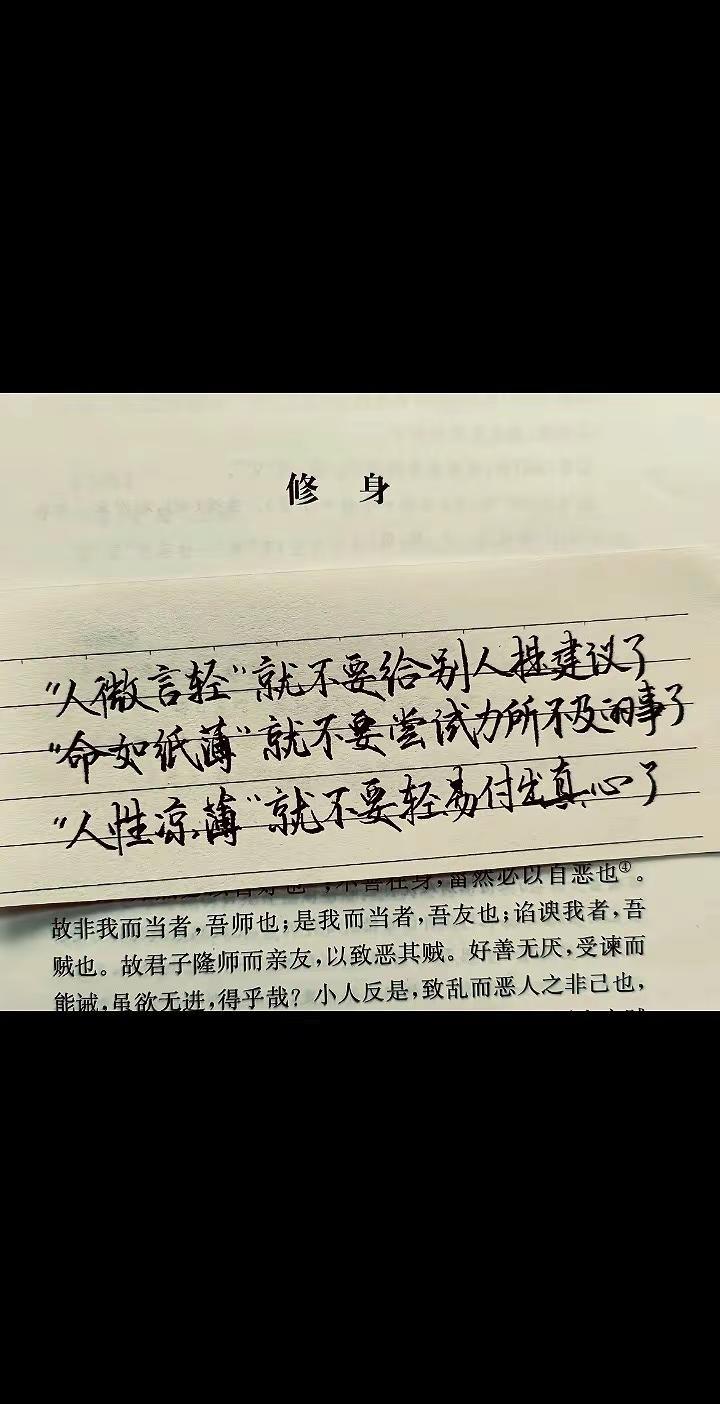 修 身
“人微言轻”就不要给别人提建议了
“命如纸薄”就不要尝试力所不及的事了
“人性凉薄”就不要轻易付出真心了
不善在身，菑然必以自恶也④。
故非我而当者，吾师也；是我而当者，吾友也；谄谀我者，吾
贼也。故君子隆师而亲友，以致恶其贼。好善无厌，受谏而
能诫，虽欲无进，得乎哉？小人反是，致乱而恶人之非己也，